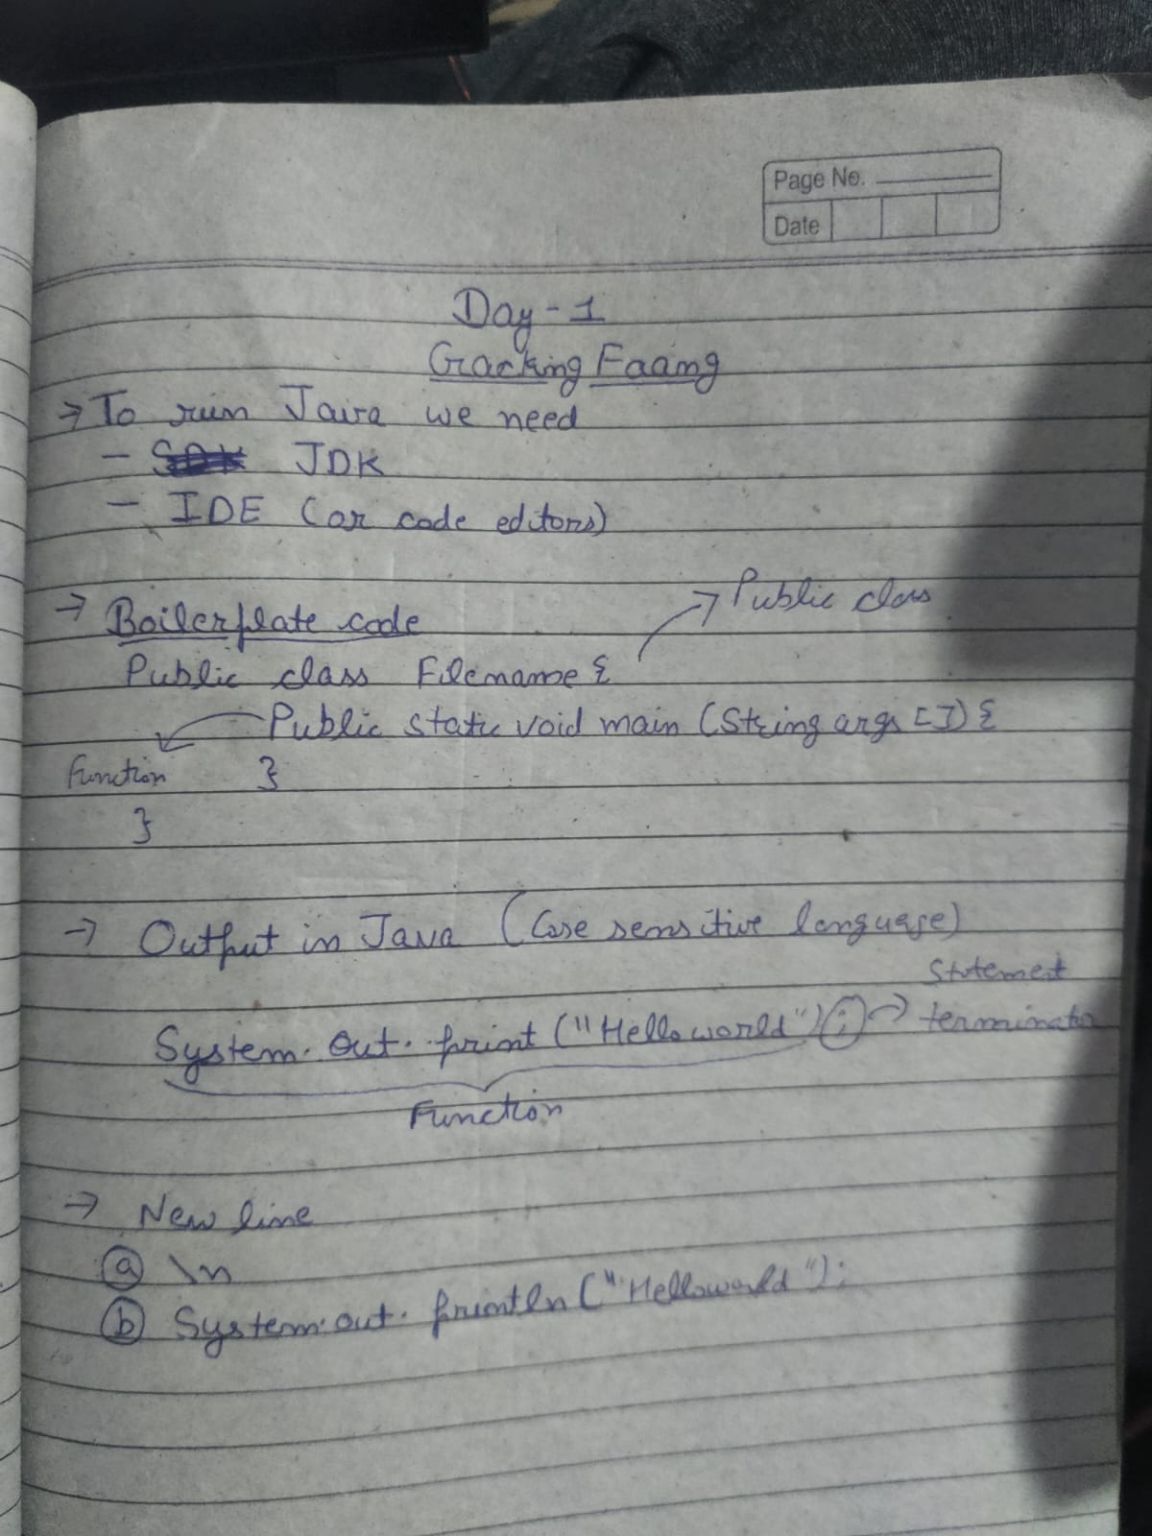 Page No.
Date
Day-1
Cracking Faang
→ To run Java we need
- JDK
- IDE (or code editors)
→ Boilerplate code
Public class
Public class Filename {
Public static void main (String args []) {
Function }
}
→ Output in Java (Case sensitive language)
Statement
System.out.print ("Hello world"); → terminator
Function
→ New line
(a) \n
(b) System.out.println ("Helloworld");